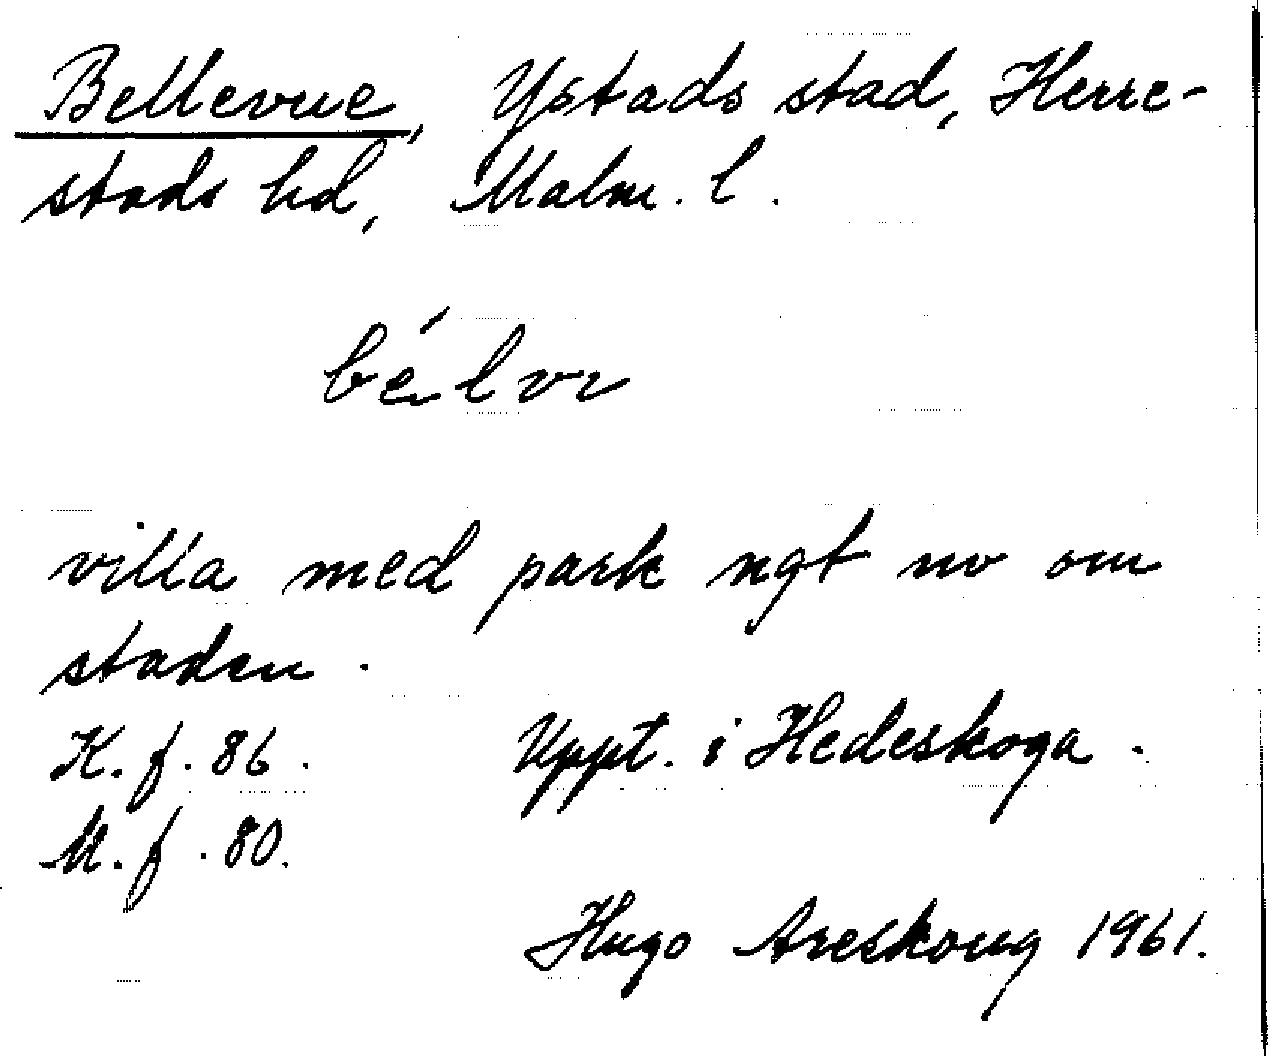 Bellevue, Ystads stad, Herre-
stads hd, Malm. l.
bélvı
villa med park ngt nv om
staden.
K. f. 86. Uppt. i Hedeskoga.
M. f. 80.
Hugo Areskoug 1961.